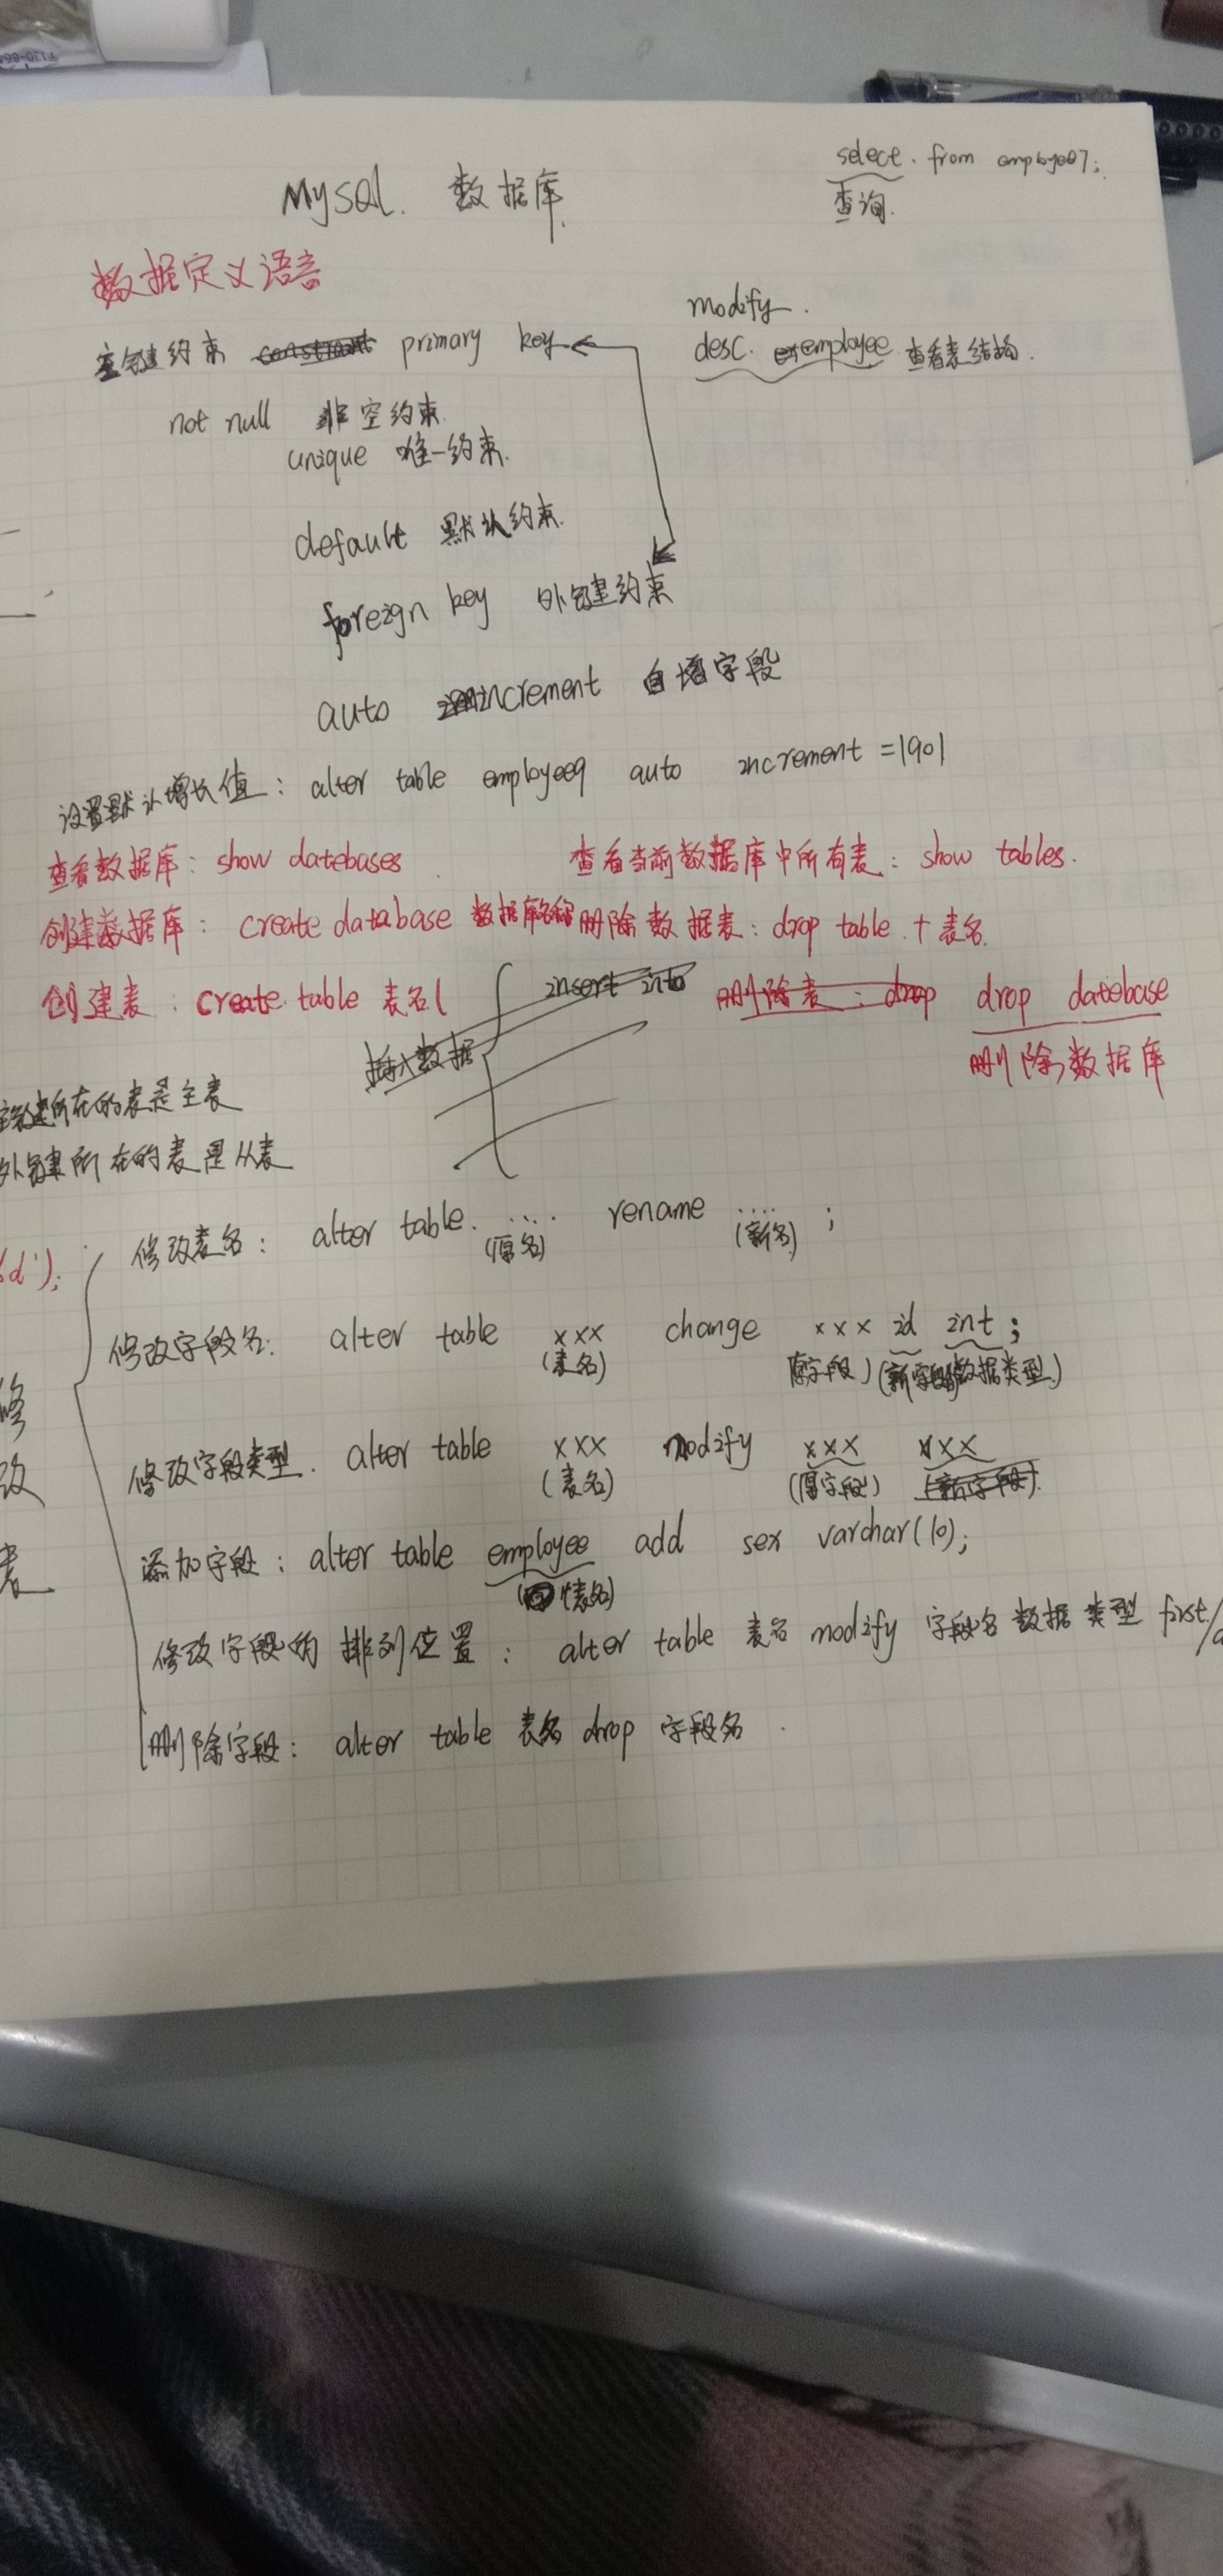 select. from employee7;
MySQL. 数据库
查询.
数据定义语言
modify.
主键约束 primary key
desc. employee 查看表结构.
not null 非空约束.
unique 唯一约束.
default 默认约束.
foreign key 外键约束
auto increment 自增字段
设置默认增长值: alter table employee9 auto increment =1901
查看数据库: show datebases
查看当前数据库中所有表: show tables.
创建数据库: create database 数据库名称
删除数据表: drop table + 表名
创建表: create table 表名(
insert into
删除表: drop
drop datebase
插入数据
删除数据库
主键所在的表是主表
外键所在的表是从表
修改表名: alter table..... rename .... ;
(原名) (新名)
d');
修改字段名: alter table xxx change xxx id int;
(表名) (原字段) (新字段) (数据类型)
修改字段类型. alter table xxx modify xxx xxx
(表名) (原字段) (新字段)
修改表
添加字段: alter table employee add sex varchar(10);
(表名)
修改字段的排列位置: alter table 表名 modify 字段名 数据类型 first/
删除字段: alter table 表名 drop 字段名